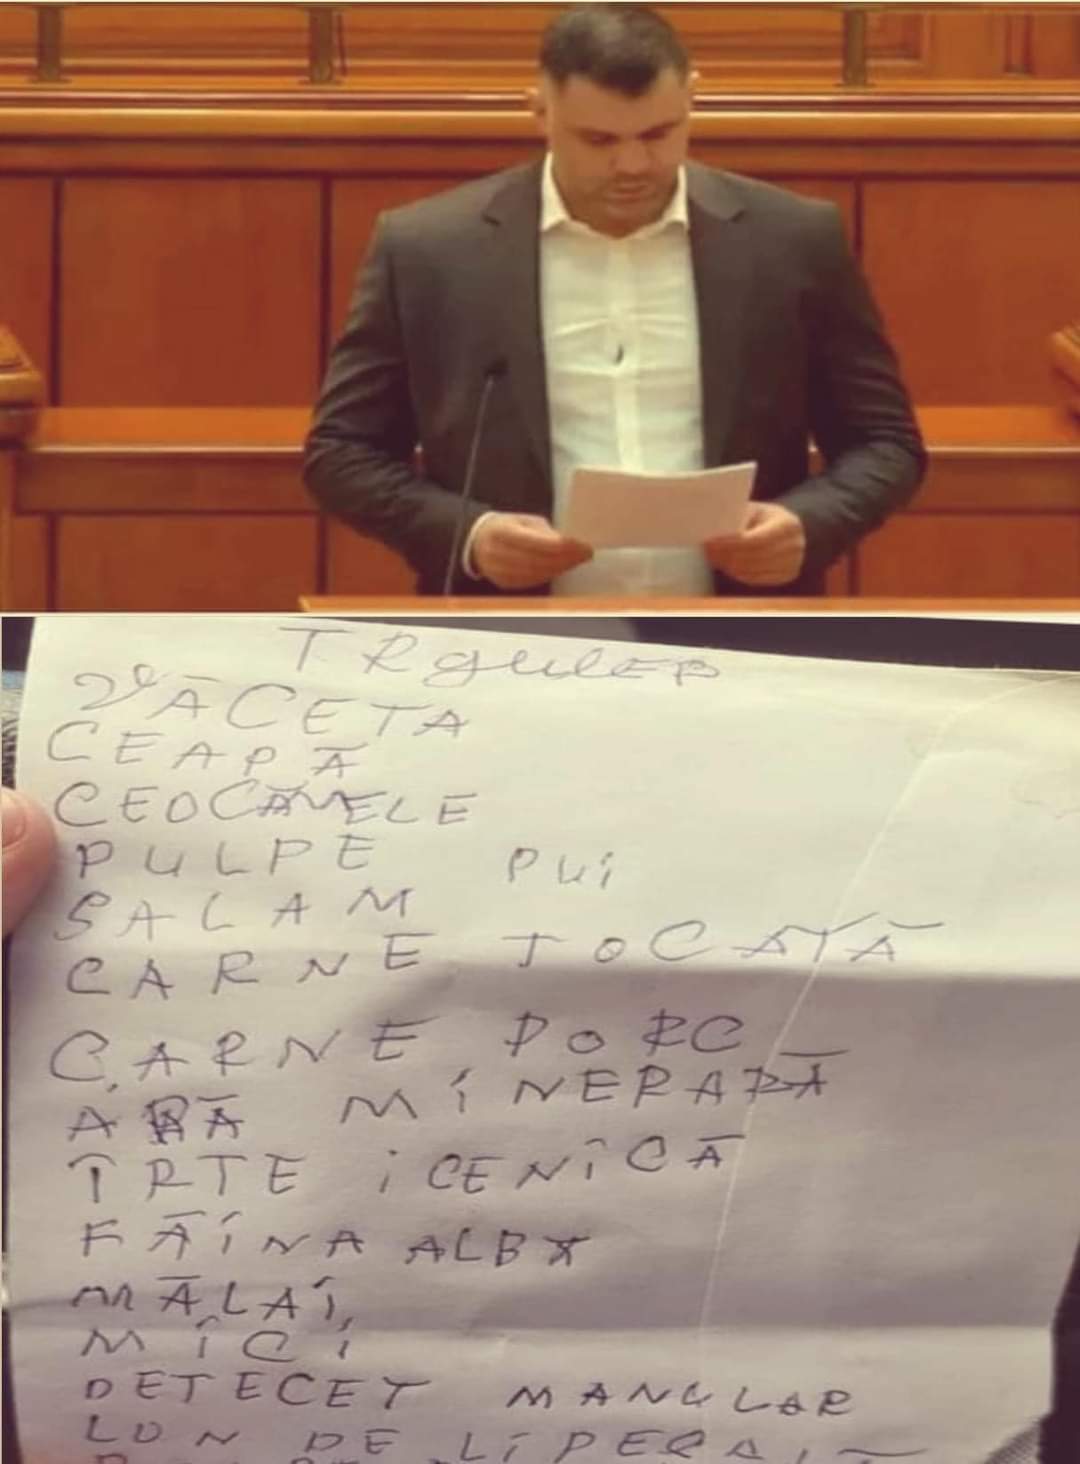 VĂCETA
CEAPĂ
CEOCĂMELE
PULPE PUI
SALAM
CARNE TOCATĂ
CARNE PORC
APĂ MINERAPĂ
ÎRTE ICENICĂ
FĂINA ALBĂ
MĂLAI
MICI
DETECET MANULAR
LON DE LIPECAT